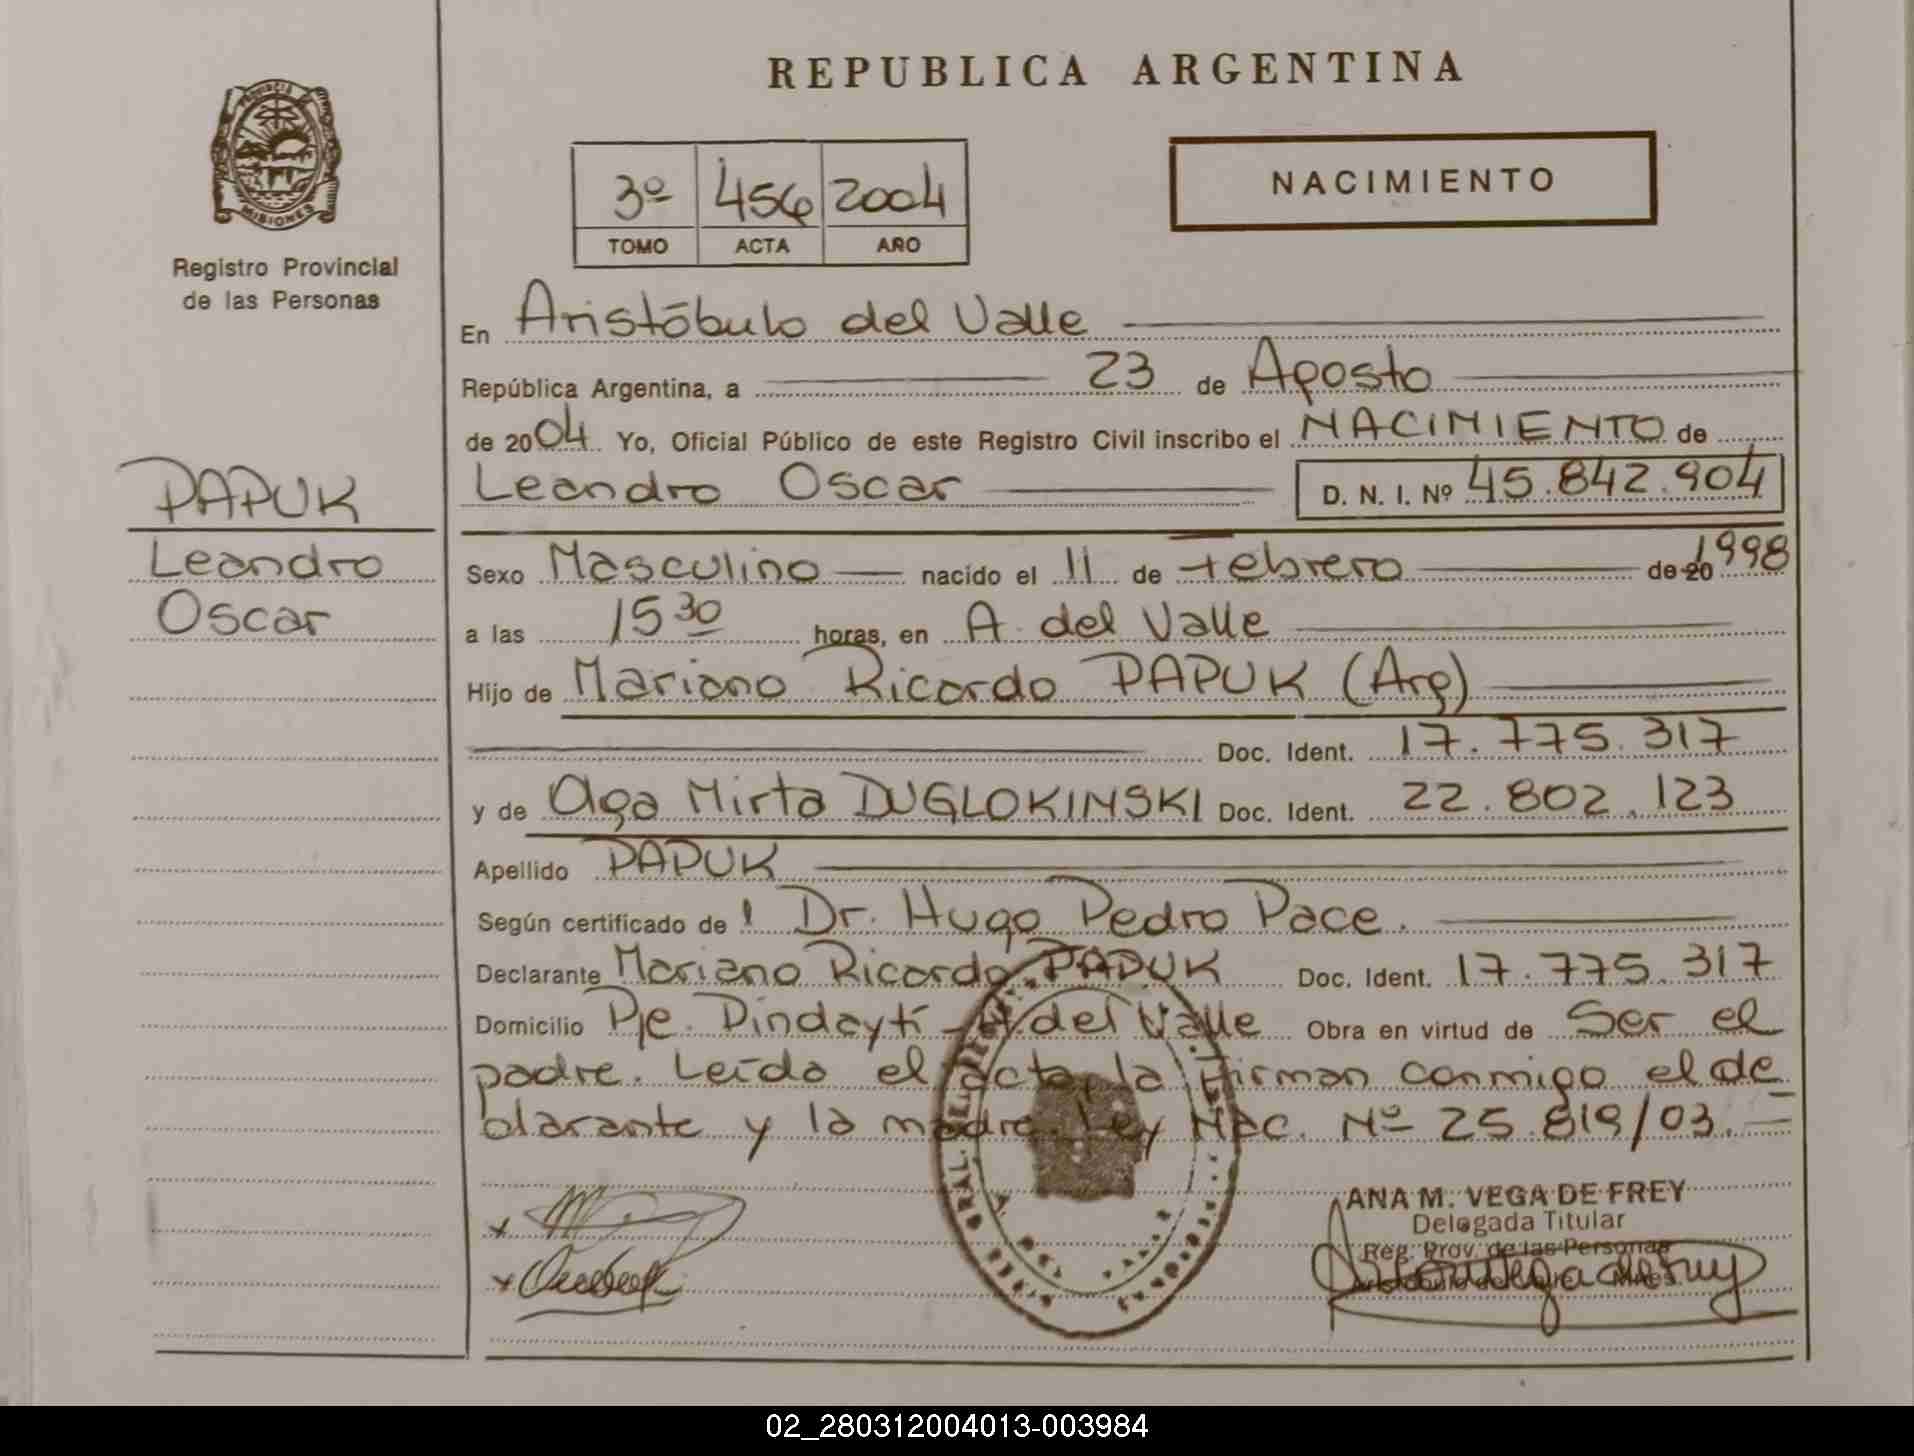 PROVINCIA
MISIONES
Registro Provincial
de las Personas
PAPUK
Leandro
Oscar
REPUBLICA ARGENTINA
3º 456 2004
TOMO ACTA AÑO
NACIMIENTO
En Aristóbulo del Valle
República Argentina, a 23 de Agosto
de 2004. Yo, Oficial Público de este Registro Civil inscribo el NACIMIENTO de
Leandro Oscar D. N. I. Nº 45.842.904
Sexo Masculino nacido el 11 de Febrero de 20 1998
a las 15 30 horas, en A. del Valle
Hijo de Mariano Ricardo PAPUK (Arg)
Doc. Ident. 17.775.317
y de Olga Mirta DUGLOKINSKI Doc. Ident. 22.802.123
Apellido PAPUK
Según certificado de l Dr. Hugo Pedro Pace.
Declarante Mariano Ricardo PAPUK Doc. Ident. 17.775.317
Domicilio Pje. Pindaytí - A. del Valle Obra en virtud de Ser el
padre. Leída el acta, la firman conmigo el de
clarante y la madre. Ley Nac. Nº 25.819/03.=
ANA M. VEGA DE FREY
Delegada Titular
Reg. Prov. de las Personas
Aristóbulo del Valle - Mnes.
02_280312004013-003984